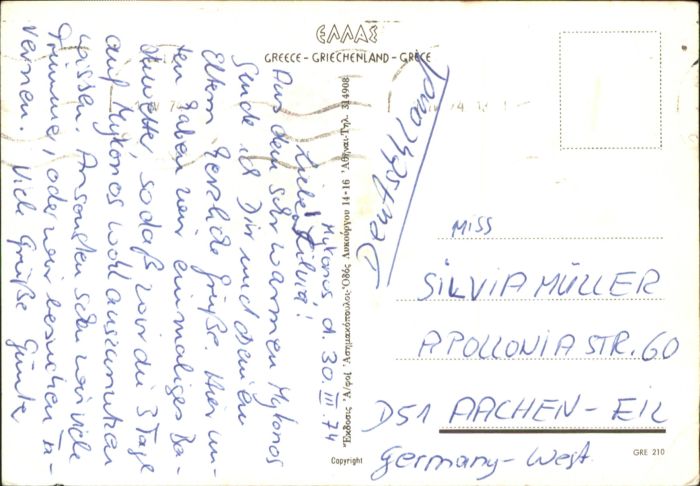 ΕΛΛΑΣ
GREECE - GRIECHENLAND - GRÈCE
Mykonos d. 30 III 74
Liebe Silvia!
Aus dem sehr warmen Mykonos
sende ich Dir und deinen
Eltern herzliche Grüße. Hier un-
ten haben wir einmaliges Ba-
dewetter, sodaß wir die 3 Tage
auf Mykonos wohl auszunutzen
wissen. Ansonsten sehn wir viele
Trümmer, oder wir besuchen
Viele Grüße Günter
Ἔκδοσις Ἀ/φοί Ἀσημακόπουλοι-Ὁδὸς Λυκούργου 14-16 Ἀθῆναι-Τηλ. 314908
Copyright
Deutschland
MISS
SILVIA MÜLLER
APOLLONIA STR. 60
D51 AACHEN - EIL
Germany - West.
GRE 210